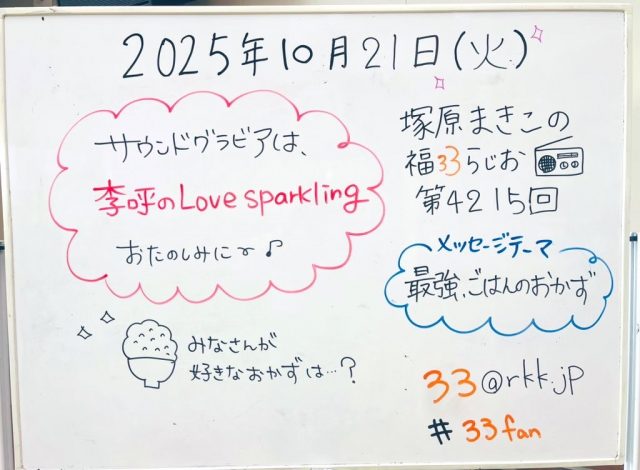 2025年10月21日(火)
サウンドグラビアは、
李呼のLove sparkling
おたのしみに〜♪
みなさんが
好きなおかずは…?
塚原まきこの
福33らじお
第4215回
メッセージテーマ
最強、ごはんのおかず
33@rkk.jp
#33fan